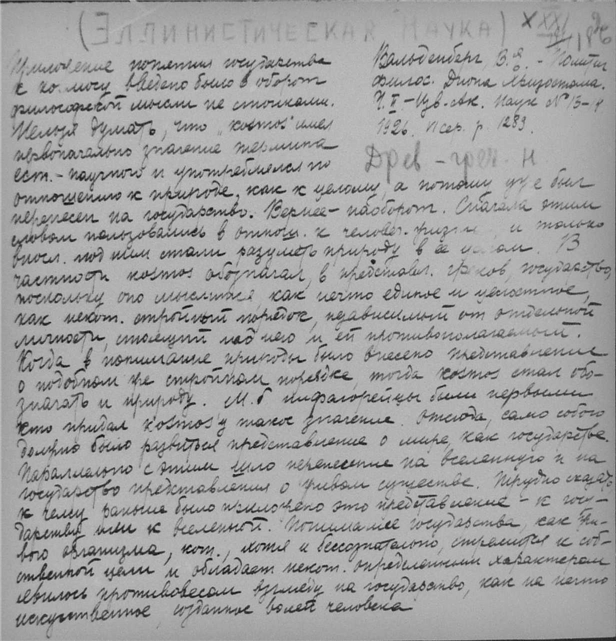 (Эллинистическая наука)
Приложение понятия государства
к космосу введено было в оборот
философской мысли не стоиками.
Нельзя думать, что „космос" имел
первоначально значение термина
ест.-научного и употреблялся по
Вальденберг, В.Е. - Полит.
филос. Диона Хризостома.
Ч. II - Изв. Ак. Наук № 15-
1926. П сер. р. 1283.
Древ-греч. н
отношению к природе, как к целому, а потому уже был
перенесен на государство. Вернее - наоборот. Сначала этим
словом пользовались в отнош. к человеч. и только
впосл. под ним стали разуметь природу в ее целом. В
частности космос обозначал, в представл. греков, государство,
поскольку оно мыслится как нечто единое и целостное,
как некот. стройный порядок, независимый от отдельной
личности, стоящий над нею и ей противополагаемый.
Когда в понимание природы было внесено представление
о подобном же стройном порядке, тогда космос стал обо-
значать и природу. М.б. пифагорейцы были первыми
кто придал космосу такое значение. Отсюда, само собою
должно было развиться представление о мире, как государстве.
Параллельно с этим шло перенесение на вселенную и на
государство представления о живом существе. Трудно сказать
к чему раньше было приложено это представление - к госу-
дарству или к вселенной. Понимание государства, как жи-
вого организма, кот., хотя и бессознательно, стремится к соб-
ственной цели и обладает некот. определенным характером
явилось противовесом взгляду на государство, как на нечто
искусственное, созданное волей человека